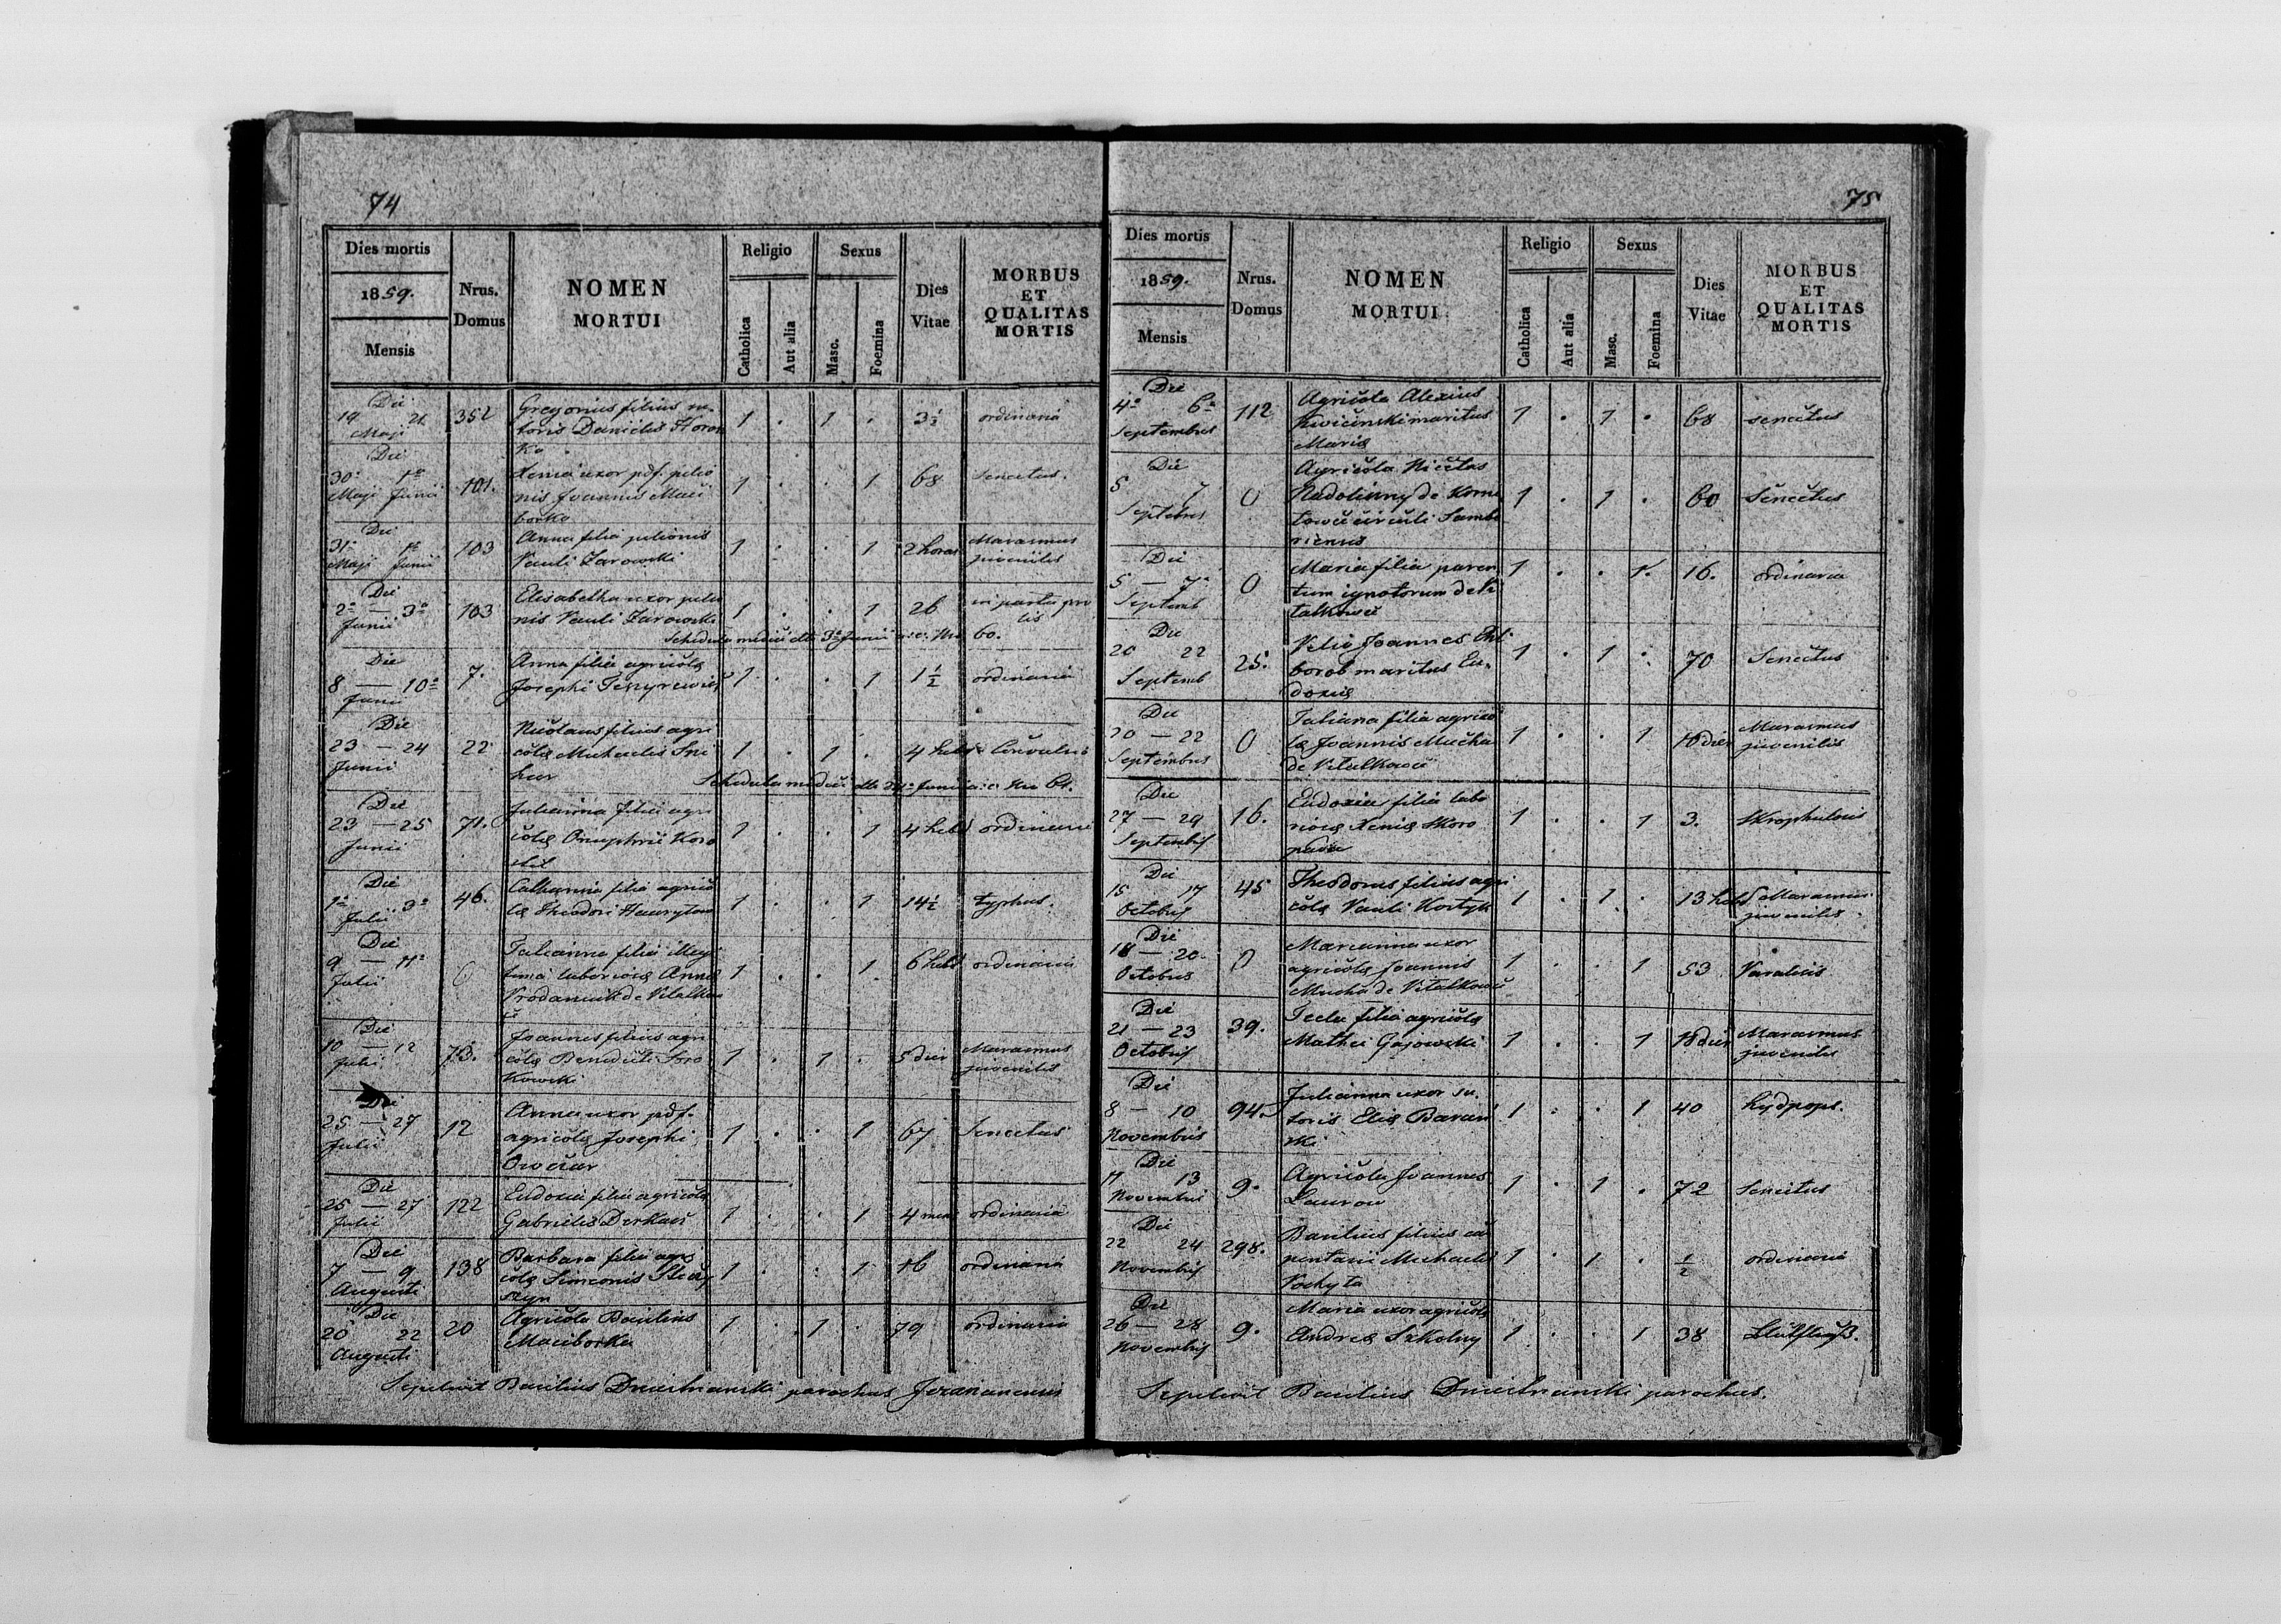 74
Dies mortis
1859.
Mensis
Nrus.
Domus
NOMEN
MORTUI
Religio
Catholica
Aut alia
Sexus
Masc.
Foemina
Dies
Vitae
MORBUS
ET
QUALITAS
MORTIS
Die
19 21
Maji
352
Gregorius filius su-
toris Danielis Horon
ko
1 . 1 .
3½
ordinaria
Die
30a 1a
Maji Junii
101.
Xenia uxor pdf. pelio
nis Joannis Maci
borka
1 . . 1
68
Senectus.
Die
31a 1a
Maji Junii
103
Anna filia pelionis
Pauli Zarowski
1 . . 1
2 horas
Marasmus
juvenilis
Die
2a — 3a
Junii
103
Elisabetha uxor pelio
nis Pauli Zarowski
1 . . 1
26
in partu pro
lis
Schedula medici dto 3a Junii a. c. Nro 60.
Die
8 — 10a
Junii
7.
Anna filia agricolæ
Josephi
1 . . 1
1½
ordinaria
Die
23 — 24
Junii
22
Nicolaus filius agri
colæ Michaelis Sni
hur
1 . 1 .
4 hebd
Schedula medici dto Junii a. c. Nro
Die
23 — 25
Junii
71.
Julianna filia agri
colæ Onuphrii Koro
1 . . 1
4 hebd
ordinaria
Die
1a 3a
Julii
46.
Catharina filia agrico
læ Theodori
1 . . 1
14½
typhus.
Die
9 — 11a
Julii
0
filia illegi
tima laboriosæ Annæ
de
1 . . 1
6 hebd
ordinaria
Die
10 — 12
Julii
73.
Joannes filius agri
colæ Benedicti Soro
kowski
1 . 1 .
5 dies
Marasmus
juvenilis
Die
25 — 27
Julii
12
Anna uxor pdf.
agricolæ Josephi
Owczar
1 . . 1
67
Senectus
Die
25 — 27
Julii
122
Eudoxia filia agricolæ
Gabrielis Derkacz
1 . . 1
4 mens
ordinaria
Die
7 — 9
Augusti
138
Barbara filia agri
colæ Simeonis
szyn
1 . . 1
16
ordinaria
Die
20 22
Augusti
20
Agricola Basilius
Maciborka
1 . 1 .
79
ordinaria
Sepelivit Basilius parochus Jezerianensis
75
Dies mortis
1859.
Mensis
Nrus.
Domus
NOMEN
MORTUI
Religio
Catholica
Aut alia
Sexus
Masc.
Foemina
Dies
Vitae
MORBUS
ET
QUALITAS
MORTIS
Die
4a 6a
Septembris
112
Agricola Alexius
maritus
Mariæ
1 . 1 .
68
senectus
Die
5 7
Septembris
0
Agricola Nicetas
Nadolinny de
circuli Sambo
riensis
1 . 1 .
60
Senectus
Die
5 — 7a
Septemb
0
Maria filia paren
tum ignotorum de Vi
talkowce
1 . . 1.
16.
ordinaria
Die
20 22
Septemb
25.
Pelio Joannes Chl
borob maritus Eu-
doxiæ
1 . 1 .
70
Senectus
Die
20 — 22
Septembris
0
Tatiana filia agrico
læ Joannis Mucha
de Vitalkowce
1 . . 1
dies
Marasmus
juvenilis
Die
27 — 29
Septembris
16.
Eudoxia filia labo
riosæ Xeniæ Skoro
1 . . 1
3.
Skrophulosis
Die
15 17
Octobris
45
Theodorus filius agri
colæ Pauli Kostyk
1 . 1 .
13 hebd
Marasmus
juvenilis
Die
18 — 20.
Octobris
0
Marianna uxor
agricolæ Joannis
Mucha de Vitalkowce
1 . . 1
53
Paralisis
Die
21 — 23
Octobris
39.
Tecla filia agricolæ
Mathei Gajowski
1 . . 1
18 dies
Marasmus
juvenilis
Die
8 — 10
Novembris
94.
Julianna uxor su-
toris Eliæ Baran
ski
1 . . 1
40
hydrops.
Die
11 13
Novembris
9.
Agricola Joannes
Laurow
1 . 1 .
72
Senectus
Die
22 24
Novembris
298.
Basilius filius car
pentarii Michaelis
Pochyta
1 . 1 .
½
ordinaria
Die
26 — 28
Novembris
9.
Maria uxor agricolæ
Andreæ Szkolny
1 . . 1
38
Blutfluß.
Sepelivit Basilius parochus.